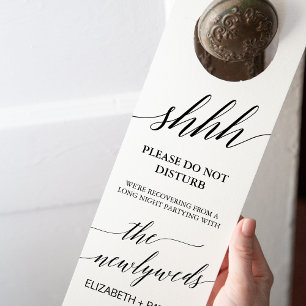 shhh
PLEASE DO NOT
DISTURB
WE'RE RECOVERING FROM A
LONG NIGHT PARTYING WITH
the
newlyweds
ELIZABETH +